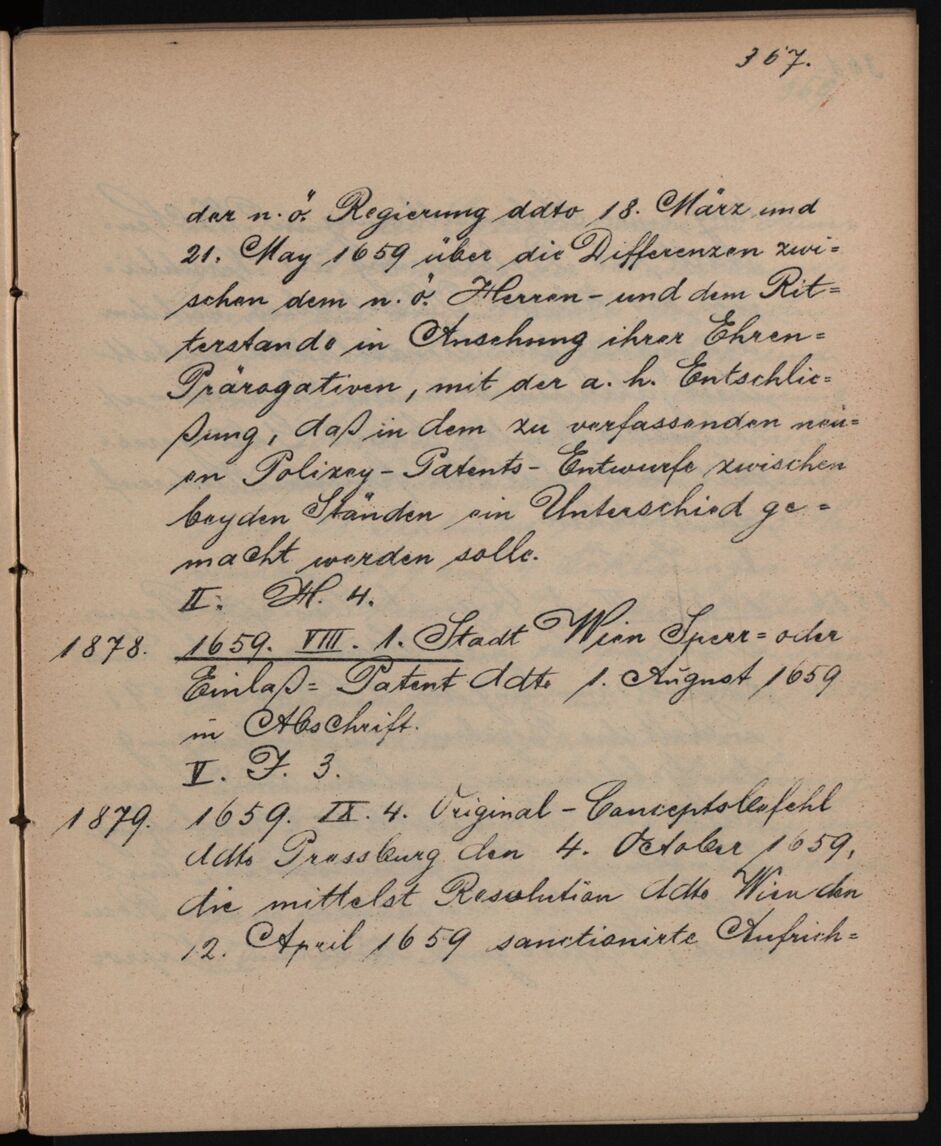 367.
der n. ö. Regierung ddto 18. März und
21. May 1659 über die Differenzen zwi=
schen dem n. ö. Herren- und dem Rit=
terstande in Ansehung ihrer Ehren=
Prärogativen, mit der a. h. Entschlie=
ßung, daß in dem zu verfassenden neu=
en Polizey-Patents-Entwurfe zwischen
beyden Ständen ein Unterschied ge=
macht werden solle.
II. H. 4.
1878. 1659. VIII. 1. Stadt Wien Sperr= oder
Einlaß= Patent ddto 1. August 1659
in Abschrift.
V. F. 3.
1879. 1659. IX. 4. Original-Conceptsbefehl
ddto Pressburg den 4. October 1659,
die mittelst Resolution ddto Wien den
12. April 1659 sanctionirte Aufrich=